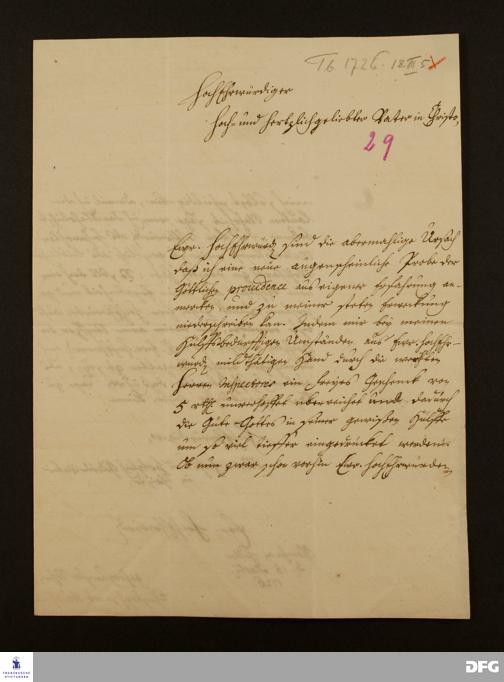 Tb 1726. 18. III. 5
HochEhrwürdiger
Hoch- und hertzlichgeliebter Vater in Christo,
29
Ewr. HochEhrwürd. sind die abermahlige Ursach
daß ich eine neue augenscheinliche Probe der
Göttlichen providence aus eigener Erfahrung an-
mercken und zu meiner steten Erweckung
niederschreiben kan. Indem mir bey meinen
Hülffsbedürfftigen Umständen aus Ewr. HochEhr-
würd. mildthätigen Hand durch die werthesten
Herren Inspectores ein freyes Geschenck von
5 rthl. unverhoffet überreichet und dadurch
die Güte Gottes in seiner gewissen Hülffe
um so viel tieffer eingedrucket worden.
Ob nun zwar schon vorhin Ewr. HochEhrwürden
FRANCKESCHE
STIFTUNGEN
DFG